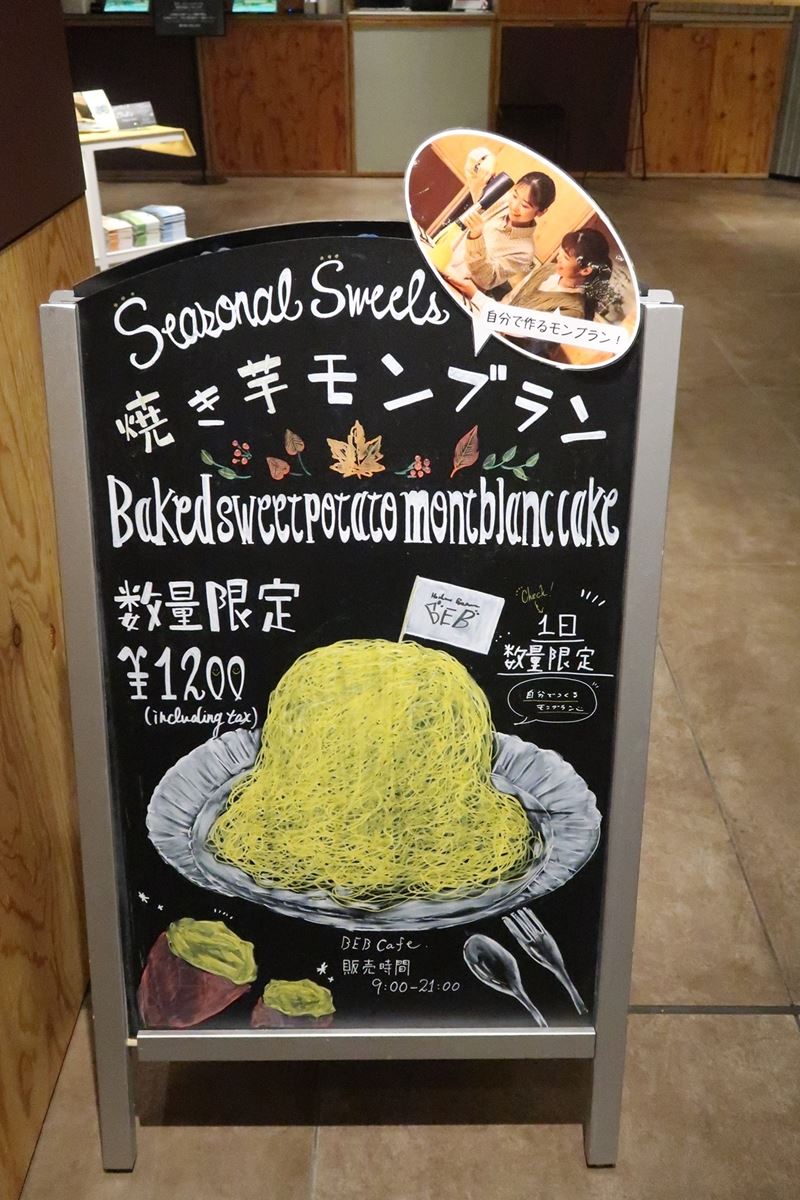 自分で作るモンブラン！
Seasonal Sweets
焼き芋モンブラン
Baked sweet potato mont blanc cake
数量限定
¥1200
(including tax)
BEB
Check!
1日
数量限定
自分でつくる
モンブラン
BEB Cafe.
販売時間
9:00-21:00